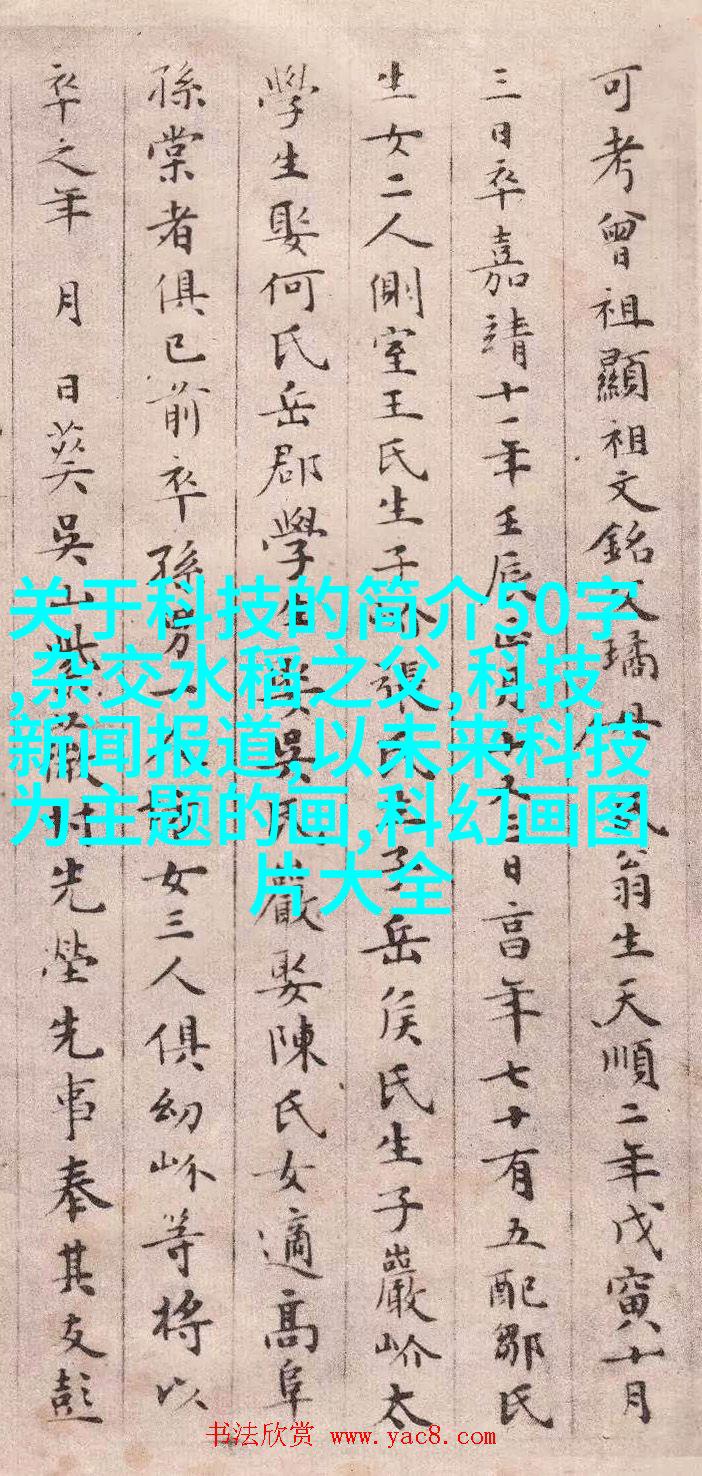 可考曾祖顯祖文銘父璚母 氏翁生天順二年戊寅十月
三日卒嘉靖十一年壬辰正月 三日享年七十有五配鄒氏
生女二人側室王氏生子 張氏生子岳侯氏生子巖岕太
學生娶何氏岳郡學生娶吳氏巖娶陳氏女適高阜
孫棠者俱已前卒孫男一人 女三人俱幼岕等將以
卒之年 月 日葬吳山 巖村先塋先事奉其友彭
关于科技的简介50字
,杂交水稻之父,科技
新闻报道,以未来科技
为主题的画,科幻画图
片大全
书法欣赏 www.yac8.com